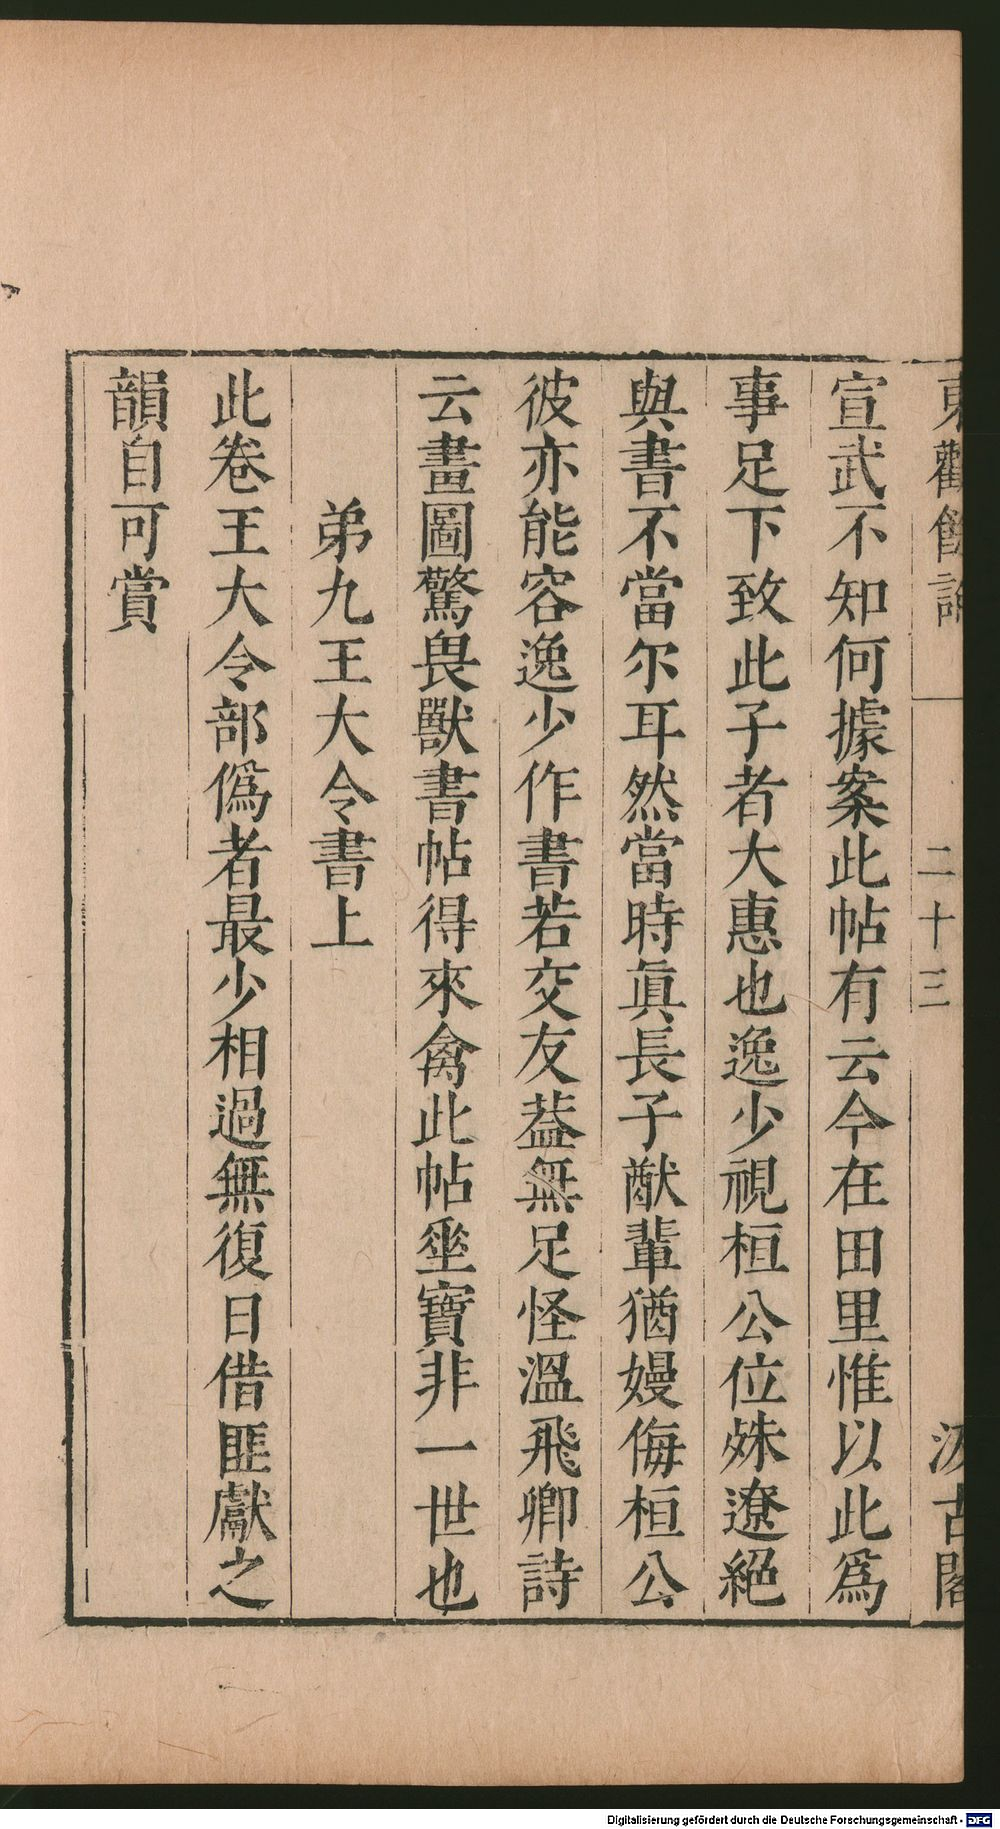 東觀餘論 二十三 汲古閣
宣武不知何據案此帖有云今在田里惟以此爲
事足下致此子者大惠也逸少視桓公位殊遼絕
與書不當尔耳然當時眞長子猷輩猶嫚侮桓公
彼亦能容逸少作書若交友葢無足怪溫飛卿詩
云畫圖驚畏獸書帖得來禽此帖㘴寶非一世也
弟九王大令書上
此卷王大令部僞者最少相過無復日借匪獻之
韻自可賞
Digitalisierung gefördert durch die Deutsche Forschungsgemeinschaft - DFG